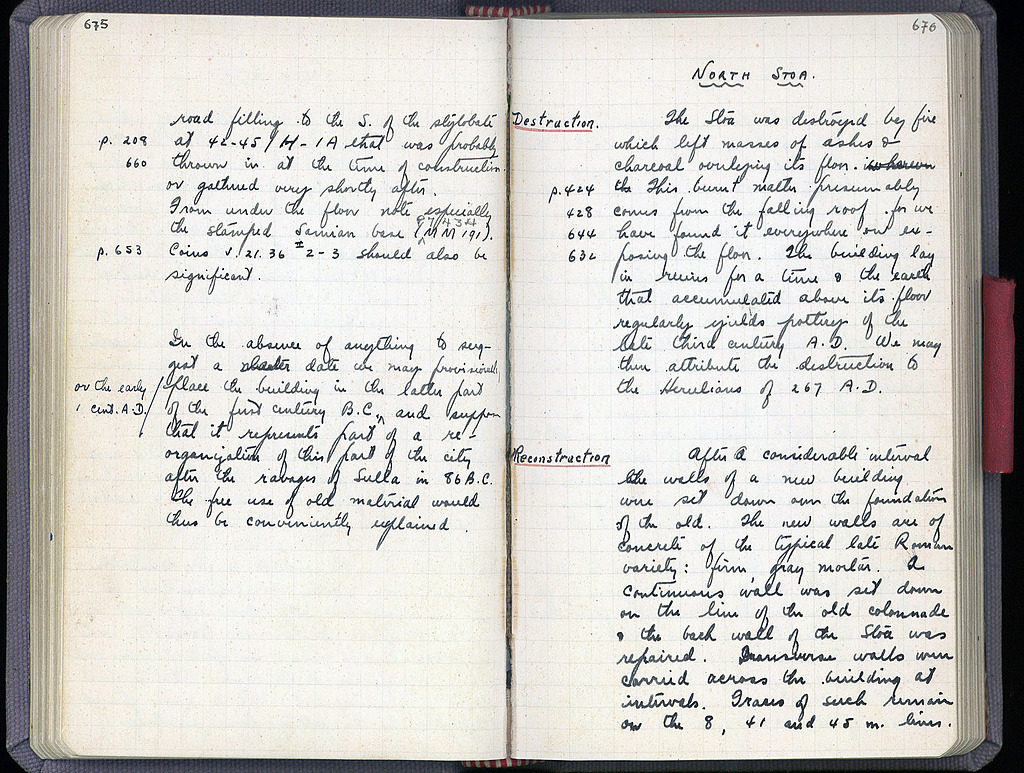 675
road filling to the S. of the stylobate
p. 208 at 42-45 / H - 1A that was probably
660 thrown in at the time of construction
or gathered very shortly after.
From under the floor note especially
the stamped Samian base (MM 191).
p. 653 Coins J. 21.36 #2-3 should also be
significant.
In the absence of anything to sug-
gest a date we may provisionally
or the early place the building in the latter part
1 cent. A.D. / of the first century B.C.^ and suppose
that it represents part of a re-
organization of this part of the city
after the ravages of Sulla in 86 B.C.
The free use of old material would
thus be conveniently explained.
676
NORTH STOA.
Destruction. The Stoa was destroyed by fire
which left masses of ashes &
charcoal overlying its floor.
p. 424 This burnt matter presumably
428 comes from the falling roof for we
644 have found it everywhere on ex-
632 posing the floor. The building lay
in ruins for a time & the earth
that accumulated above its floor
regularly yields pottery of the
late third century A.D. We may
then attribute the destruction to
the Herulians of 267 A.D.
Reconstruction After a considerable interval
the walls of a new building
were set down over the foundations
of the old. The new walls are of
concrete of the typical late Roman
variety: firm, gray mortar. A
continuous wall was set down
on the line of the old colonnade
& the back wall of the Stoa was
repaired. Transverse walls were
carried across the building at
intervals. Traces of such remain
on the 8, 41 and 45 m. lines.